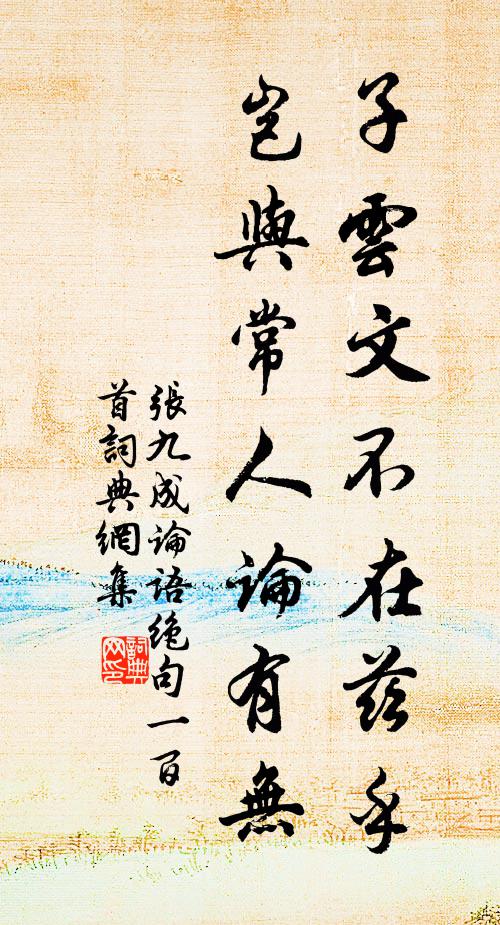 子雲文不在茲乎
豈與常人論有無
張九成論語絶句一百
首詞典網集
詞典
网印